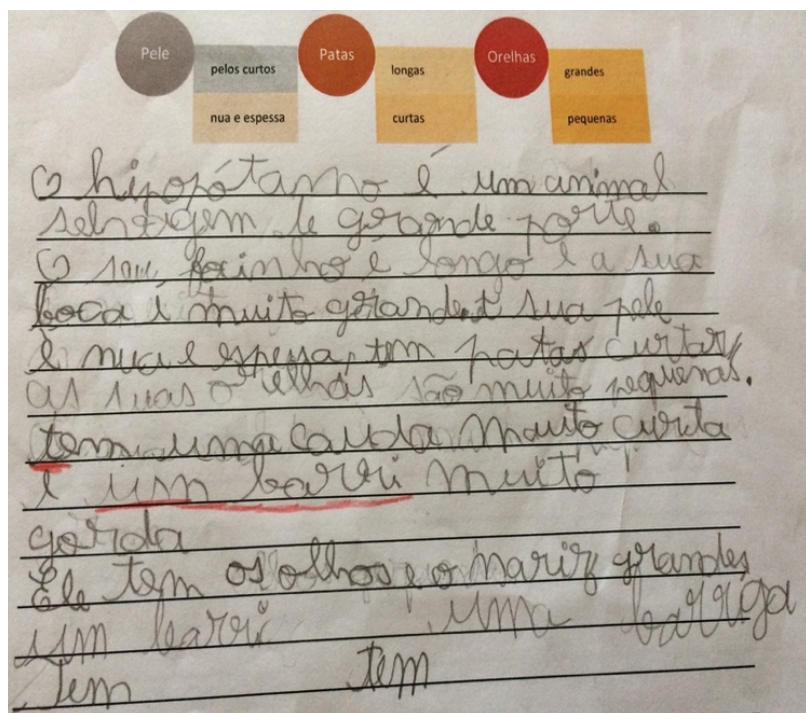 Pele
pelos curtos
nua e espessa
Patas
longas
curtas
Orelhas
grandes
pequenas
O hipopótamo é um animal
selvagem de grande porte.
O seu focinho é longo e a sua
boca é muito grande. A sua pele
é nua e espessa, tem patas curtas,
as suas orelhas são muito pequenas.
tem uma cauda muito curta
e um barri muito
gorda
Ele tem os olhos e o nariz grandes,
um barri uma barriga
Tem tem